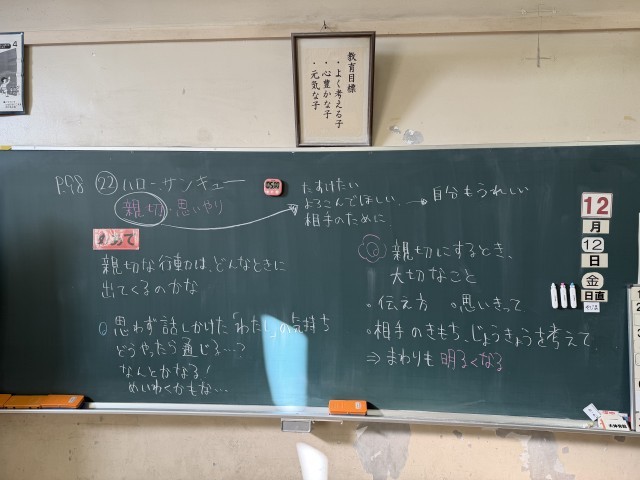 教育目標
・よく考える子
・心豊かな子
・元気な子
P.98 ㉒ ハロー・サンキュー
親切・思いやり
たすけたい
よろこんでほしい、
相手のために
→自分もうれしい
めあて
親切な行動は、どんなときに
出てくるのかな
○思わず話しかけた「わたし」の気持ち
どうやったら通じる…?
なんとかなる!
めいわくかもな…
親切にするとき、
大切なこと
・伝え方 ・思いきって
・相手のきもち、じょうきょうを考えて
⇒まわりも明るくなる
12
月
12
日
金
日直
05:00